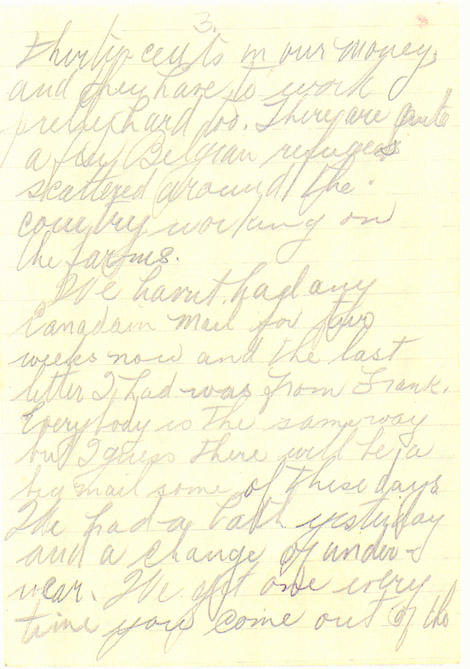 3.
thirty cents in our money,
and they have to work
pretty hard too. There are quite
a few Belgian refugees
scattered around the
country working on
the farms.
We havnt had any
Canadain mail for two
weeks now and the last
letter I had was from Frank.
Everybody is the same way
but I guess there will be a
big mail some of these days
We had a bath yesterday
and a change of under-
wear. We get one every
time you come out of the